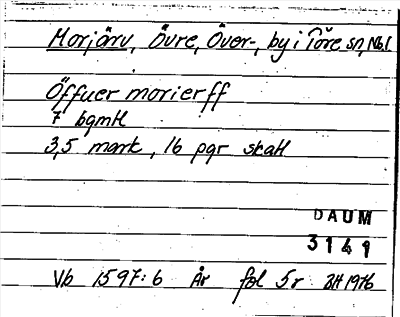 Morjärv, Övre, Över-, by i Töre sn, Nbl
Öffuer morierff
7 bgmtl
3,5 mark, 16 pgr skatt
DAUM
3141
Vb 1597:6 År fol 5r BH 1976